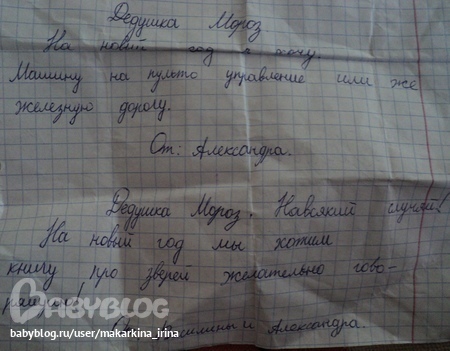 Дедушка Мороз
На новый год я хочу
Машину на пульто управление или же
железную дорогу.
От: Александра.
Дедушка Мороз. Навсякий случай!
На новый год мы хотим
книгу про зверей желательно гово-
BABYBLOG
и Александра.
babyblog.ru/user/makarkina_irina